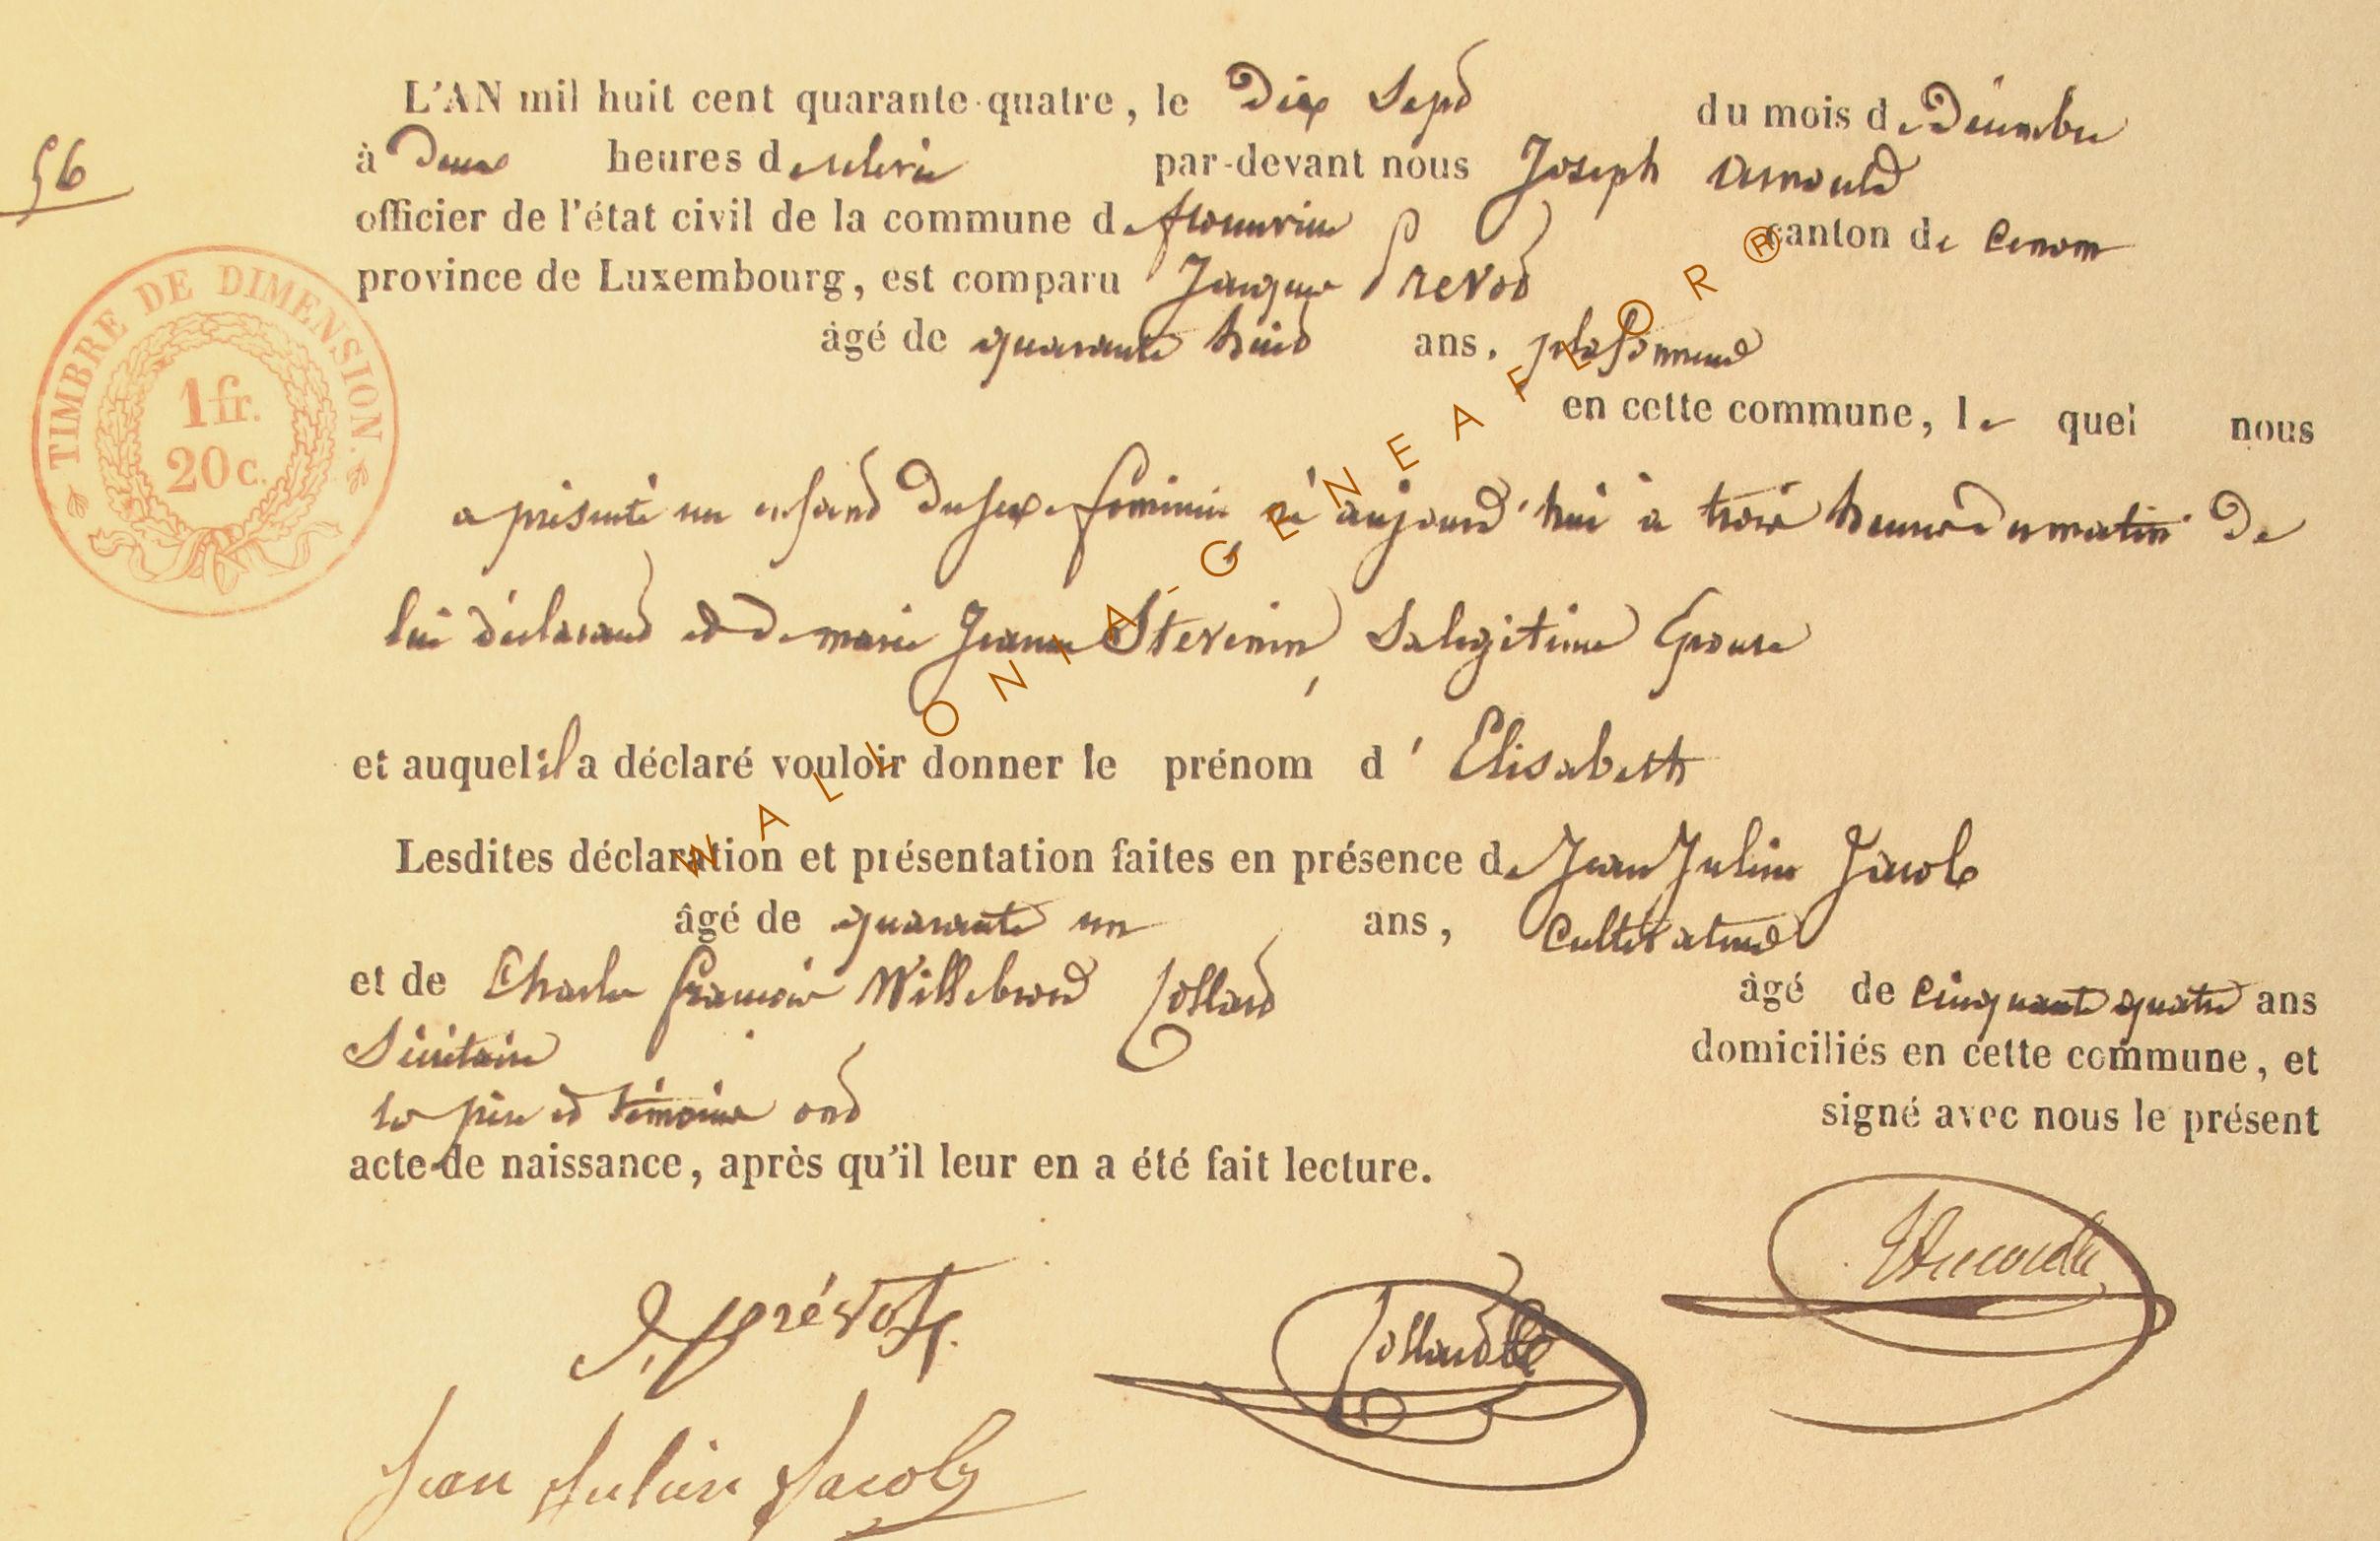 L'AN mil huit cent quarante-quatre, le Dix Sept du mois de Décembre
56
à Deux heures de relevée par-devant nous Joseph Arnould
officier de l'état civil de la commune de canton de
province de Luxembourg, est comparu Jacques Prevot
âgé de quarante huit ans, plafonneur
en cette commune, le quel nous
a présenté un enfant du sexe féminin né aujourd'hui à trois heures du matin de
lui déclarant et de marie Jeanne Stevenin Sa legitime Epouse
et auquel il a déclaré vouloir donner le prénom d' Elisabeth
Lesdites déclaration et présentation faites en présence de Jean Julien Jacob
âgé de quarante un ans, Cultivateur
et de Charles françois Willebrord Collard âgé de cinquante quatre ans
Secrétaire domiciliés en cette commune, et
les père et témoins ont signé avec nous le présent
acte de naissance, après qu'il leur en a été fait lecture.
J. prévot.
Collard
Jean Julien Jacob
TIMBRE DE DIMENSION.
1 fr.
20 c.
WALLONIA-GENEAFLOR®